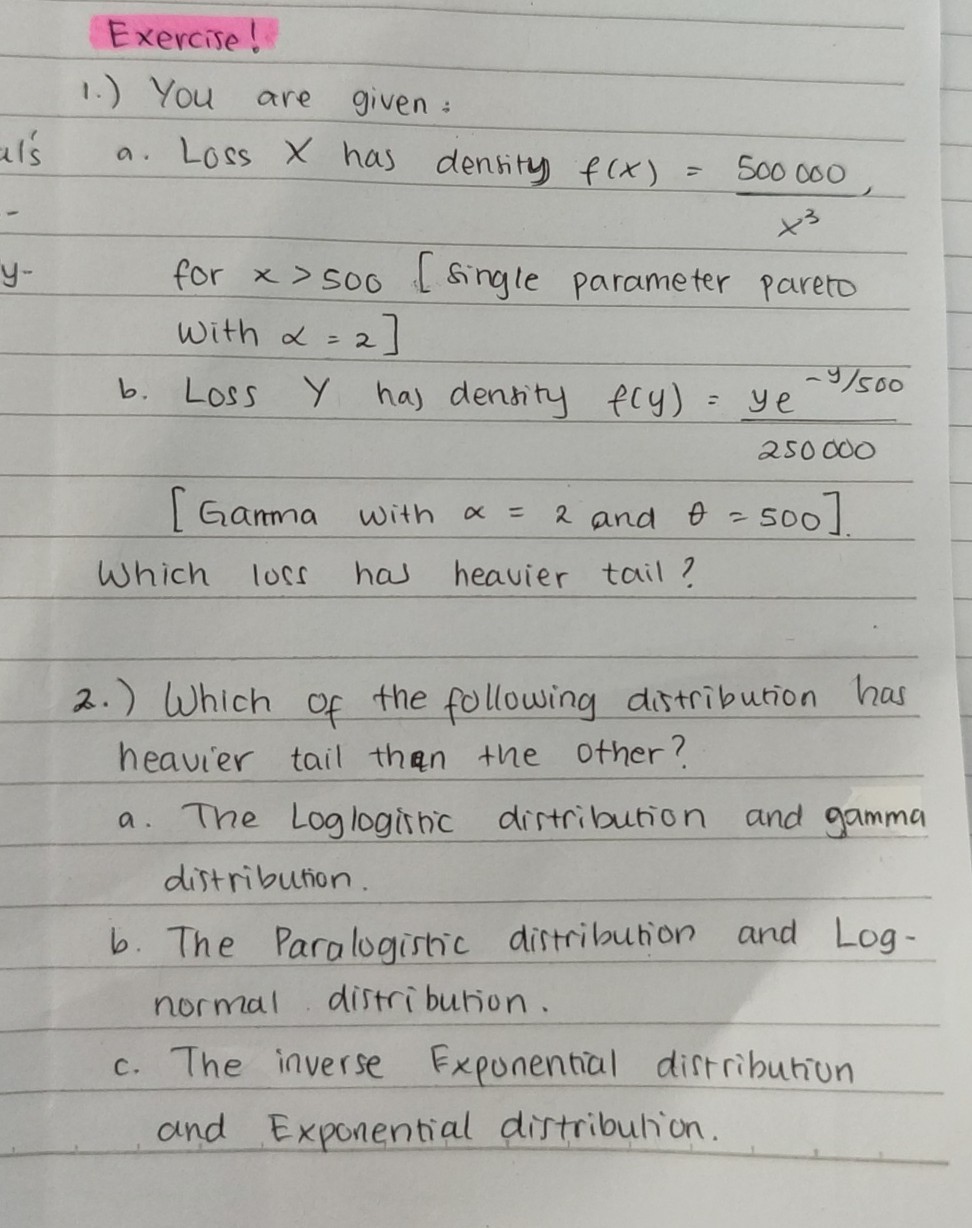 Exercise!
1.) You are given:
al's
a. Loss X has density f(x) = 500 000,
x³
-
y-
for x > 500 [single parameter pareto
with α = 2]
b. Loss Y has density f(y) = ye^-y/500
250 000
[Gamma with α = 2 and θ = 500].
Which loss has heavier tail?
2.) Which of the following distribution has
heavier tail than the other?
a. The Loglogistic distribution and gamma
distribution.
b. The Paralogistic distribution and Log-
normal distribution.
c. The inverse Exponential distribution
and Exponential distribution.